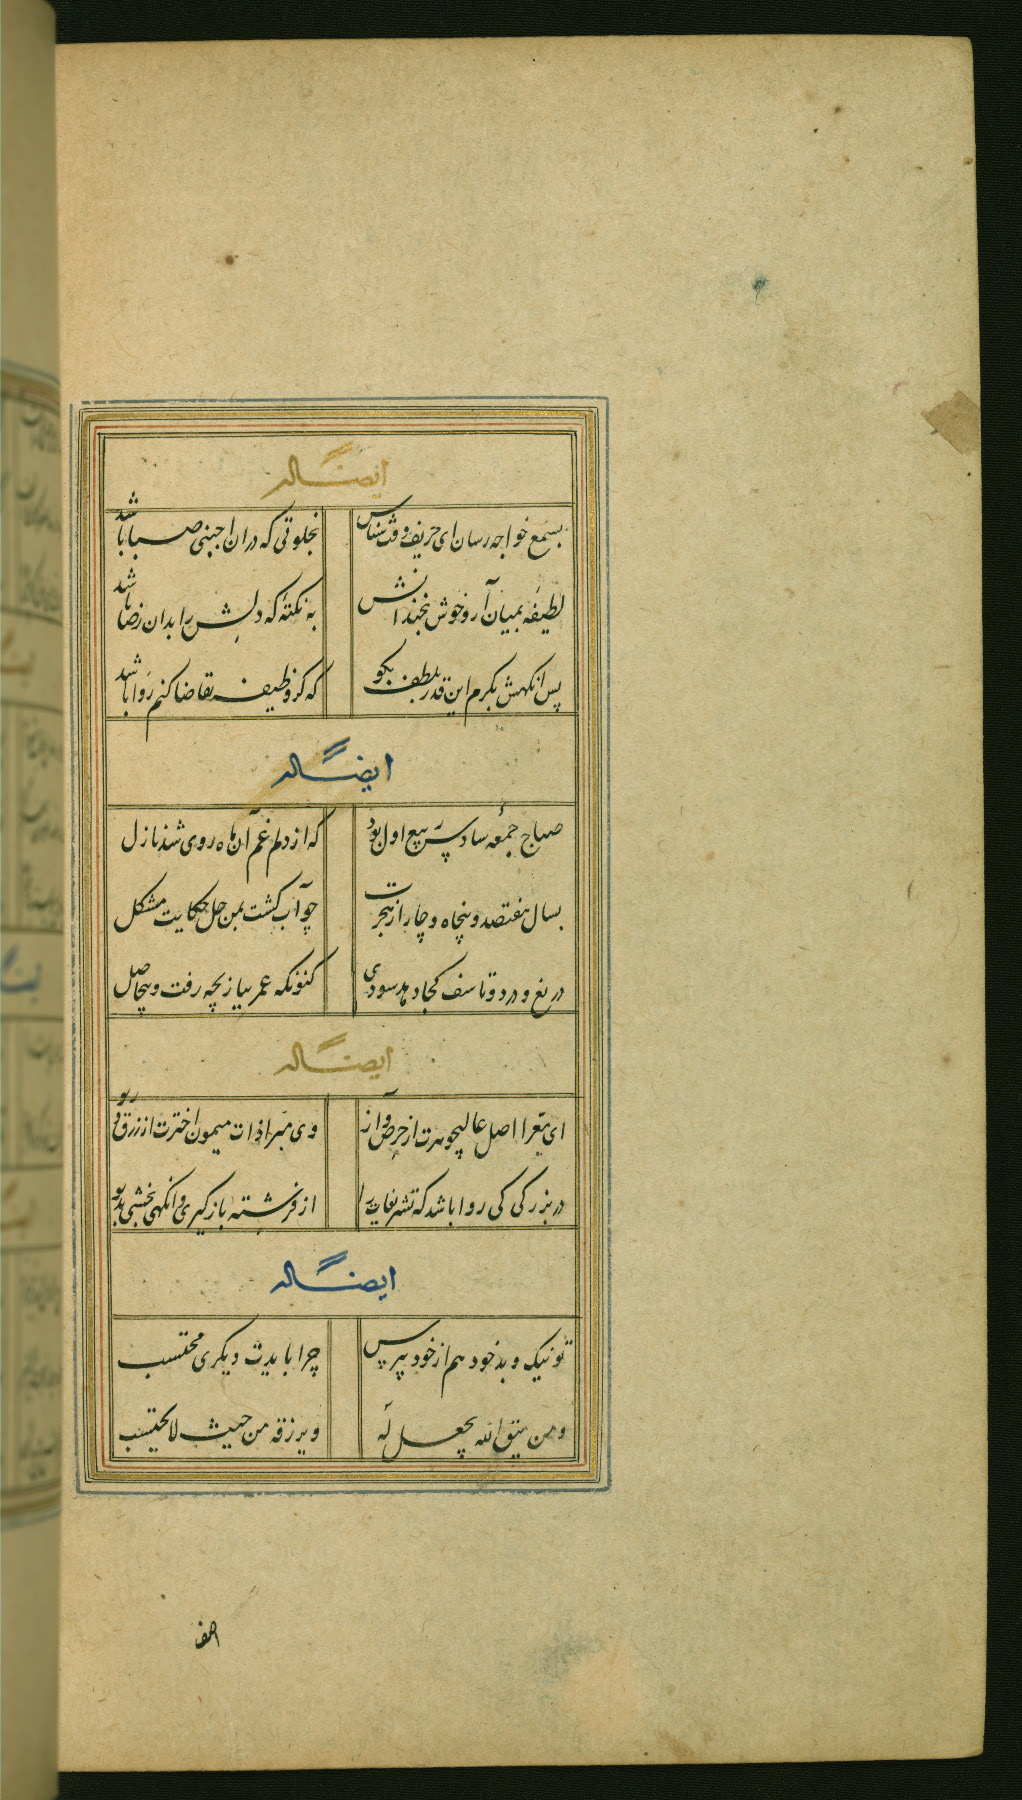 ایضاله
بسمع خواجه رسان ای حریف وقت شناس بخلوتی که در ان اجنبی صبا باشد
لطیفهٔ بمیان آر و خوش بخندانش به نکتهٔ که دلش را بدان رضا باشد
پس انکهش بکرم این قدر بلطف بکو که کر وظیفه تقاضا کنم روا باشد
ایضاله
صباح جمعه سادس ربیع اول بود که از دلم غم آن ماه روی شد نازل
بسال هفتصد و پنجاه و چار از هجرت چو آب کشت بمن حل حکایت مشکل
دریغ و درد و تاسف کجا دهد سودی کنونکه عمر ببازیچه رفت و بیحاصل
ایضاله
ای معرا اصل عالیجوهرت از حرص و آز وی مبرا ذات میمون اخترت از زرق و ریو
در بزرکی کی روا باشد که تشریفات را از فرشته بازکیری و انکهی بخشی بدیو
ایضاله
تو نیک و بد خود هم از خود بپرس چرا بایدت دیکری محتسب
ومن یتق الله یجعل له ویرزقه من حیث لا یحتسب